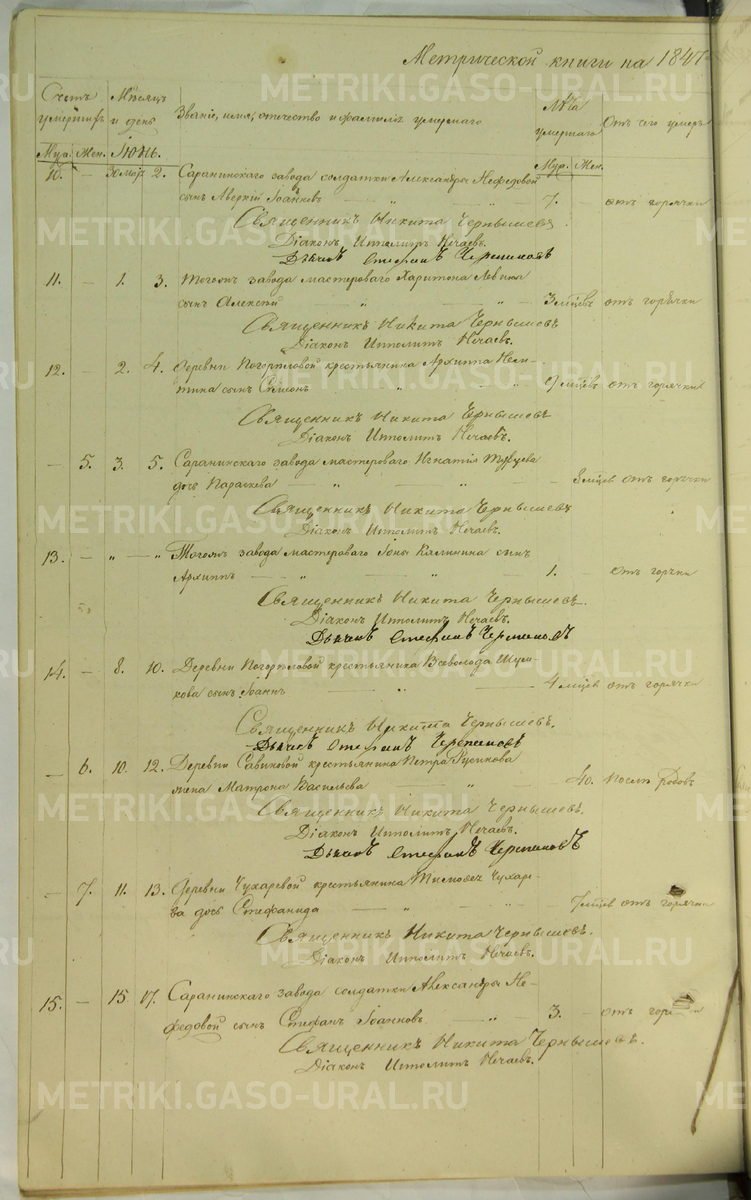 Метрической книги на 1847
Счетъ умершихъ
Мѣсяцъ и день
Званіе, имя, отечество и фамилія умершаго
Лѣта умершаго
Отъ чего умеръ
Муж. Жен. Іюнь. Муж. Жен.
10. — 2. Саранинскаго завода солдатки Александры Нефедовой
сынъ Аверкій Іоанновъ — " — " — 7. — отъ горячки
Священникъ Никита Чернышевъ.
Діаконъ Ипполитъ Нечаевъ.
Дьячекъ Стефанъ Черепановъ
11. — 1. 3. Тогожъ завода мастероваго Харитона Левина
сынъ Алексѣй — " — " — 3 мѣсяцевъ отъ горячки
Священникъ Никита Чернышевъ
Діаконъ Ипполитъ Нечаевъ.
12. 2. 4. Деревни крестьянина Архиппа
сынъ Симеонъ " " 9 мѣсцевъ отъ горячки
Священникъ Никита Чернышевъ
Діаконъ Ипполитъ Нечаевъ.
— 5. 3. 5. Саранинскаго завода мастероваго Игнатія
дочь Параскева — " — " — мѣсцевъ отъ горячки
Священникъ Никита Чернышевъ
Діаконъ Ипполитъ Нечаевъ.
13. — " — " Тогожъ завода мастероваго Іоны Калинина сынъ
Архиппъ — " — " — 1. — отъ горячки
Священникъ Никита Чернышевъ.
Діаконъ Ипполитъ Нечаевъ.
Дьячекъ Стефанъ Черепановъ
14. — 8. 10. Деревни крестьянина Всеволода Шум-
кова сынъ Іоаннъ — " — 4 мѣсцевъ отъ горячки
Священникъ Никита Чернышевъ.
Дьячекъ Стефанъ Черепановъ
— 6. 10. 12. Деревни Савиновой крестьянина Петра Русинова
жена Матрона Васильева — " — 40. послѣ родовъ
Священникъ Никита Чернышевъ.
Діаконъ Ипполитъ Нечаевъ.
Дьячекъ Стефанъ Черепановъ
— 7. 11. 13. Деревни Чухаревой крестьянина Тимофея Чухаре-
ва дочь Стефанида — " — " — 7 мѣсцевъ отъ горячки
Священникъ Никита Чернышевъ.
Діаконъ Ипполитъ Нечаевъ.
15. — 15 17. Саранинскаго завода солдатки Александры Не-
федовой сынъ Стефанъ Іоанновъ — " — 3. — отъ горячки
Священникъ Никита Чернышовъ.
Діаконъ Ипполитъ Нечаевъ.
METRIKI.GASO-URAL.RU
METRIKI.GASO-URAL.RU
METRIKI.GASO-URAL.RU
METRIKI.GASO-URAL.RU
METRIKI.GASO-URAL.RU
METRIKI.GASO-URAL.RU
METRIKI.GASO-URAL.RU
METRIKI.GASO-URAL.RU